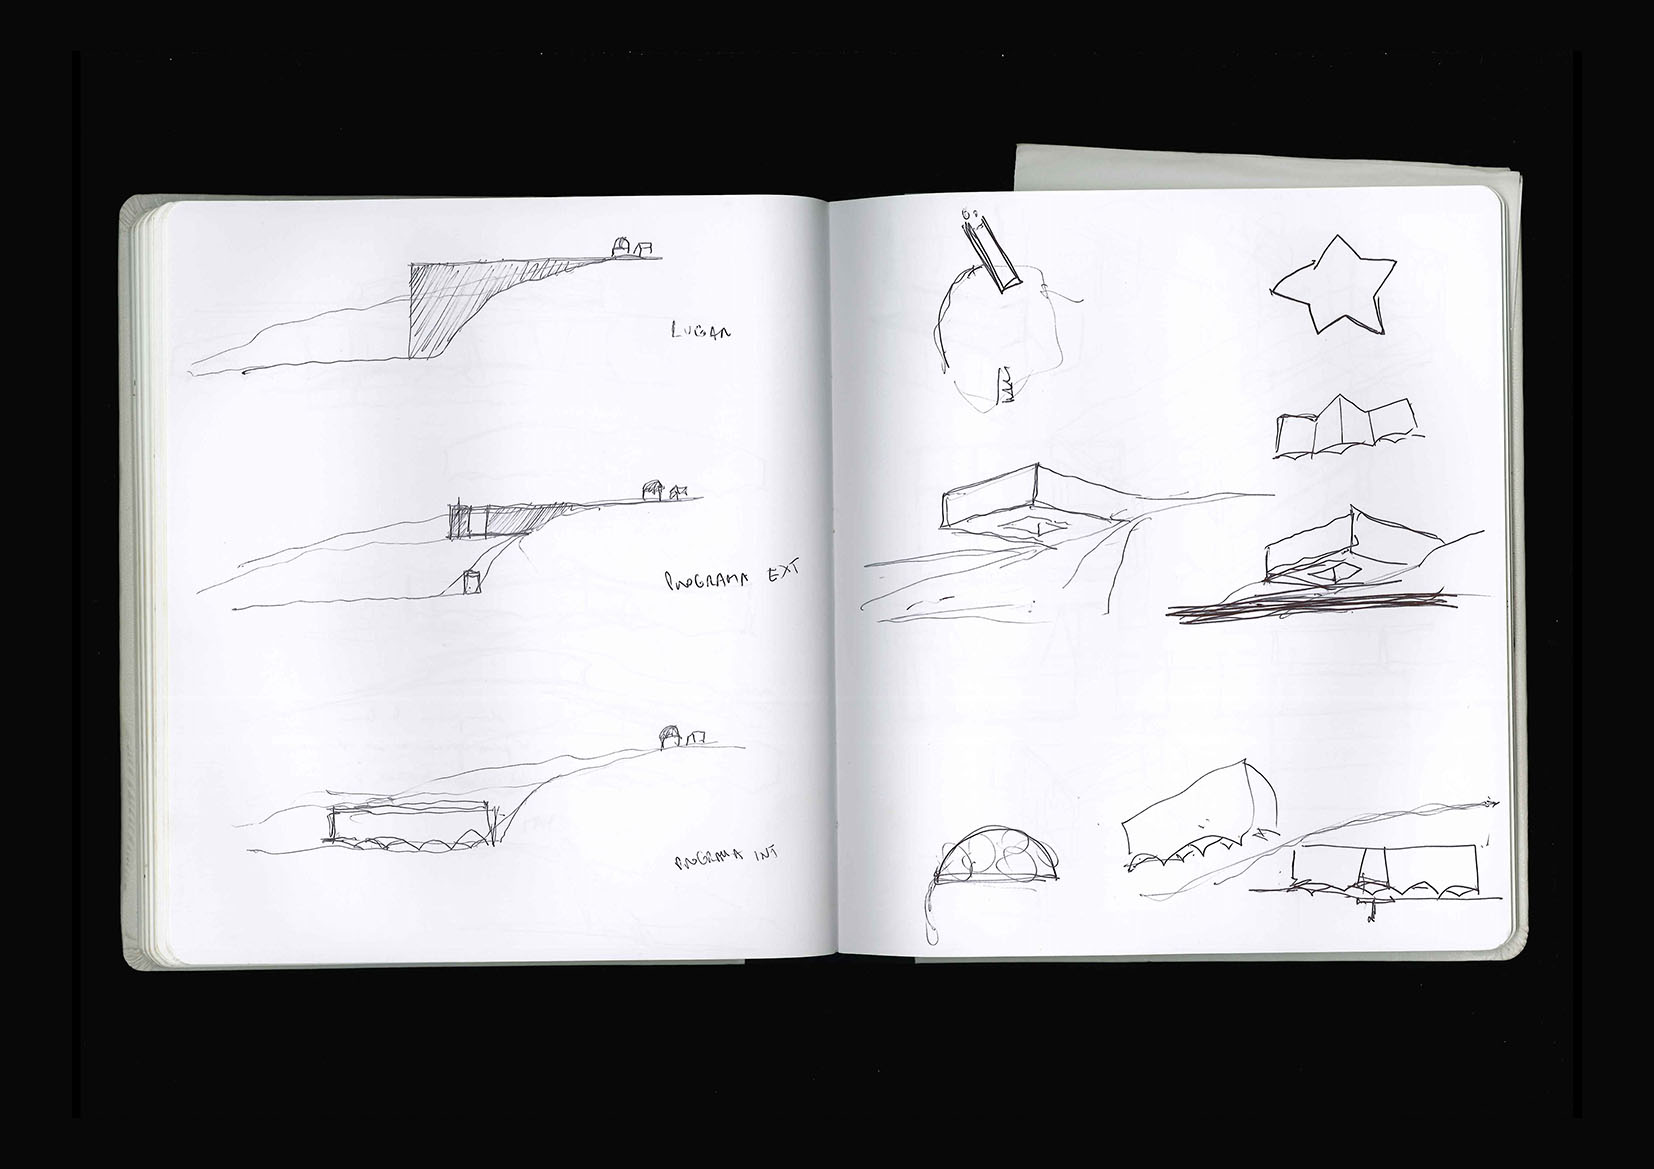 LUGAR
PROGRAMA EXT
PROGRAMA INT